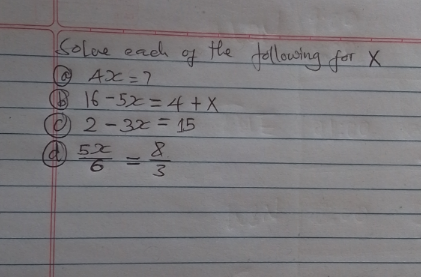 Solve each of the following for X
(a) 4x = 7
(b) 16 - 5x = 4 + x
(c) 2 - 3x = 15
(d) 5x/6 = 8/3